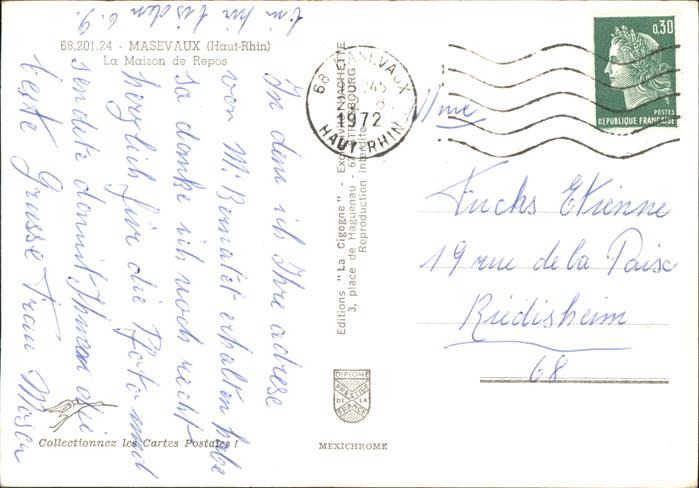 68.201.24 - MASEVAUX (Haut-Rhin)
La Maison de Repos
In dem ich Ihre adresse
von M. erhalten habe
so danke ich noch recht
herzlich für die Photo und
sendete damit Ihnen die
beste Grusse Frau Moser
bin hir bis den 6.9.
Editions "La Cigogne" - Exclusivité HACHETTE
3, place de Haguenau - 67-STRASBOURG
Reproduction interdite
68 MASEVAUX
1945
1972
HAUT-RHIN
0,30
POSTES
REPUBLIQUE FRANÇAISE
Mme
Fuchs Etienne
19 rue de la Paix
Riedisheim
68
DIPLOME
PRESTIGE
DE LA
FRANCE
MEXICHROME
Collectionnez les Cartes Postales !